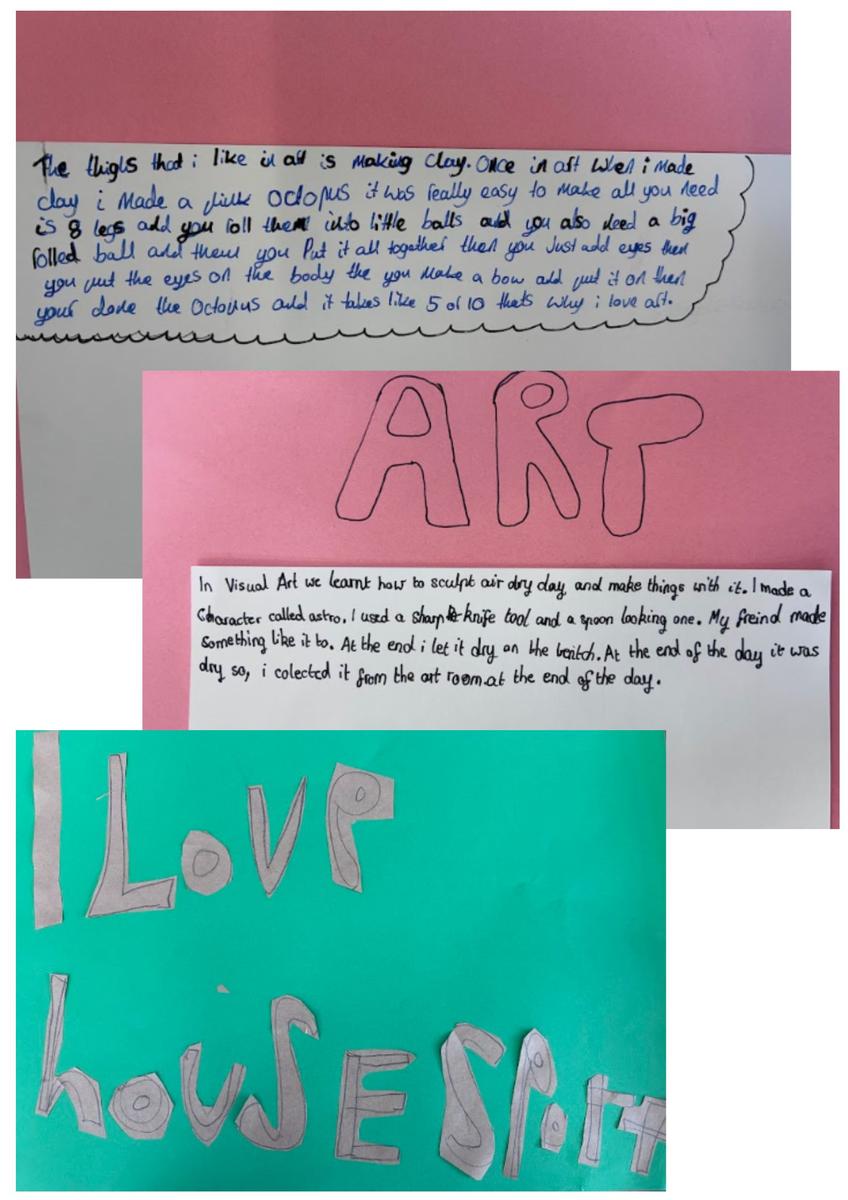 The thighs that i like in art is making clay. Once in art when i made
clay i made a little Octopus it was really easy to make all you need
is 8 legs and you roll them into little balls and you also need a big
rolled ball and them you Put it all together then you Just add eyes then
you put the eyes on the body the you make a bow and put it on then
your done the Octopus and it takes like 5 or 10 thats why i love art.
ART
In Visual Art we learnt how to sculpt air dry clay and make things with it. I made a
Character called astro. I used a sharp knife tool and a spoon looking one. My freind made
something like it to. At the end i let it dry on the
At the end of the day it was
dry so, i colected it from the art room.at the end of the day.
I LOVE
hoUSE SPort